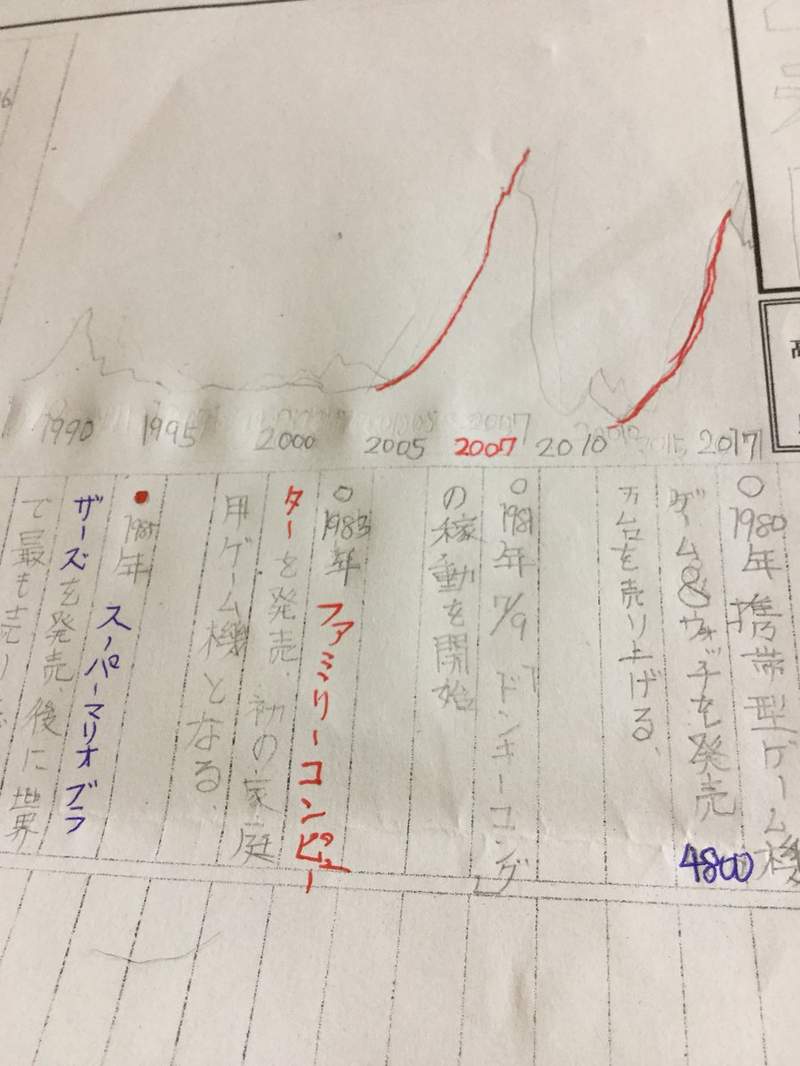 1990 1995 2000 2005 2007 2010 2017
○1980年携帯型ゲーム機
ゲーム&ウォッチを発売 4800
万台を売り上げる、
○1981年7/9「ドンキーコング」
の稼動を開始
○1983年ファミリーコンピュー
ターを発売、初の家庭
用ゲーム機となる、
●1985年スーパーマリオブラ
ザーズを発売、後に世界
で最も売り